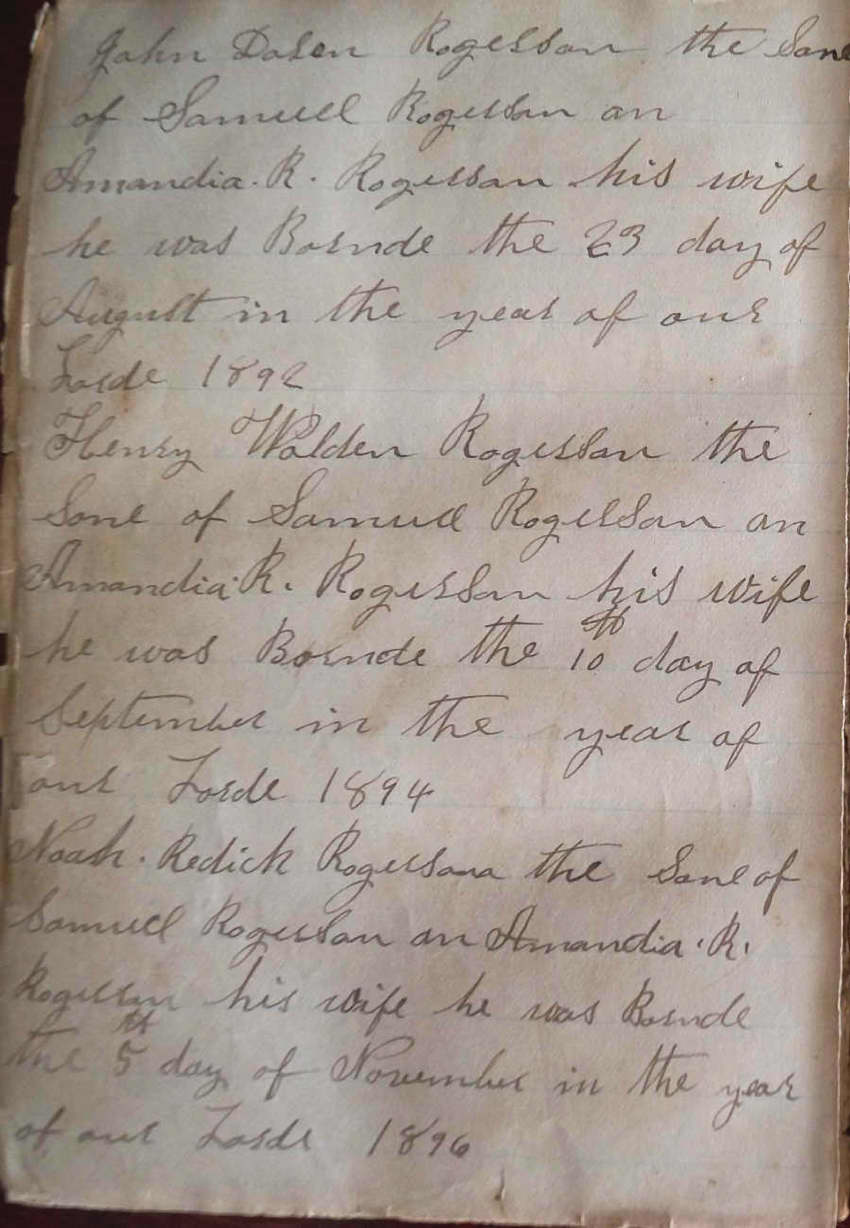 John Dosen Rogersson the Sone
of Samuell Rogersson an
Amandia. R. Rogersson his wife
he was Bornde the 23 day of
August in the year of our
Lorde 1892
Henry Walden Rogersson the
Sone of Samuell Rogersson an
Amandia. R. Rogersson his wife
he was Bornde the 10th day of
September in the year of
our Lorde 1894
Noah. Redick Rogersson the Sone of
Samuell Rogersson an Amandia. R.
Rogersson his wife he was Bornde
the 5th day of November in the year
of our Lorde 1896